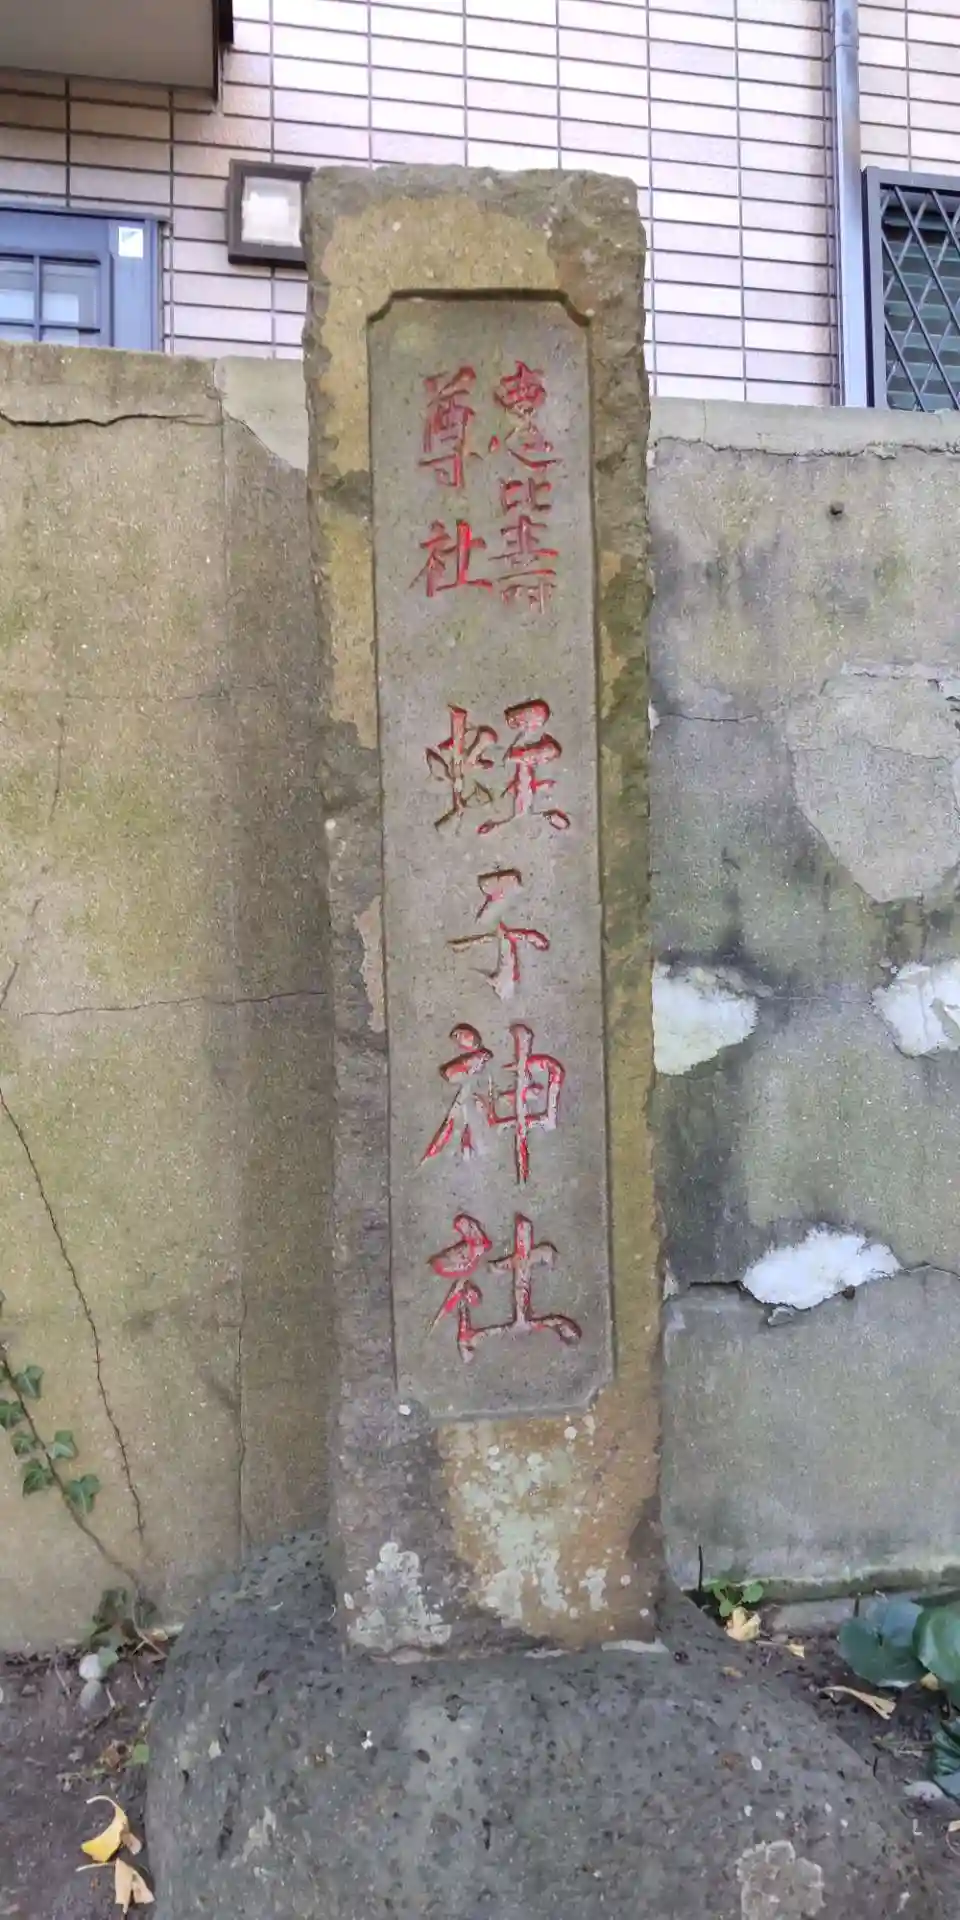 恵比壽
尊社
蛭子神社